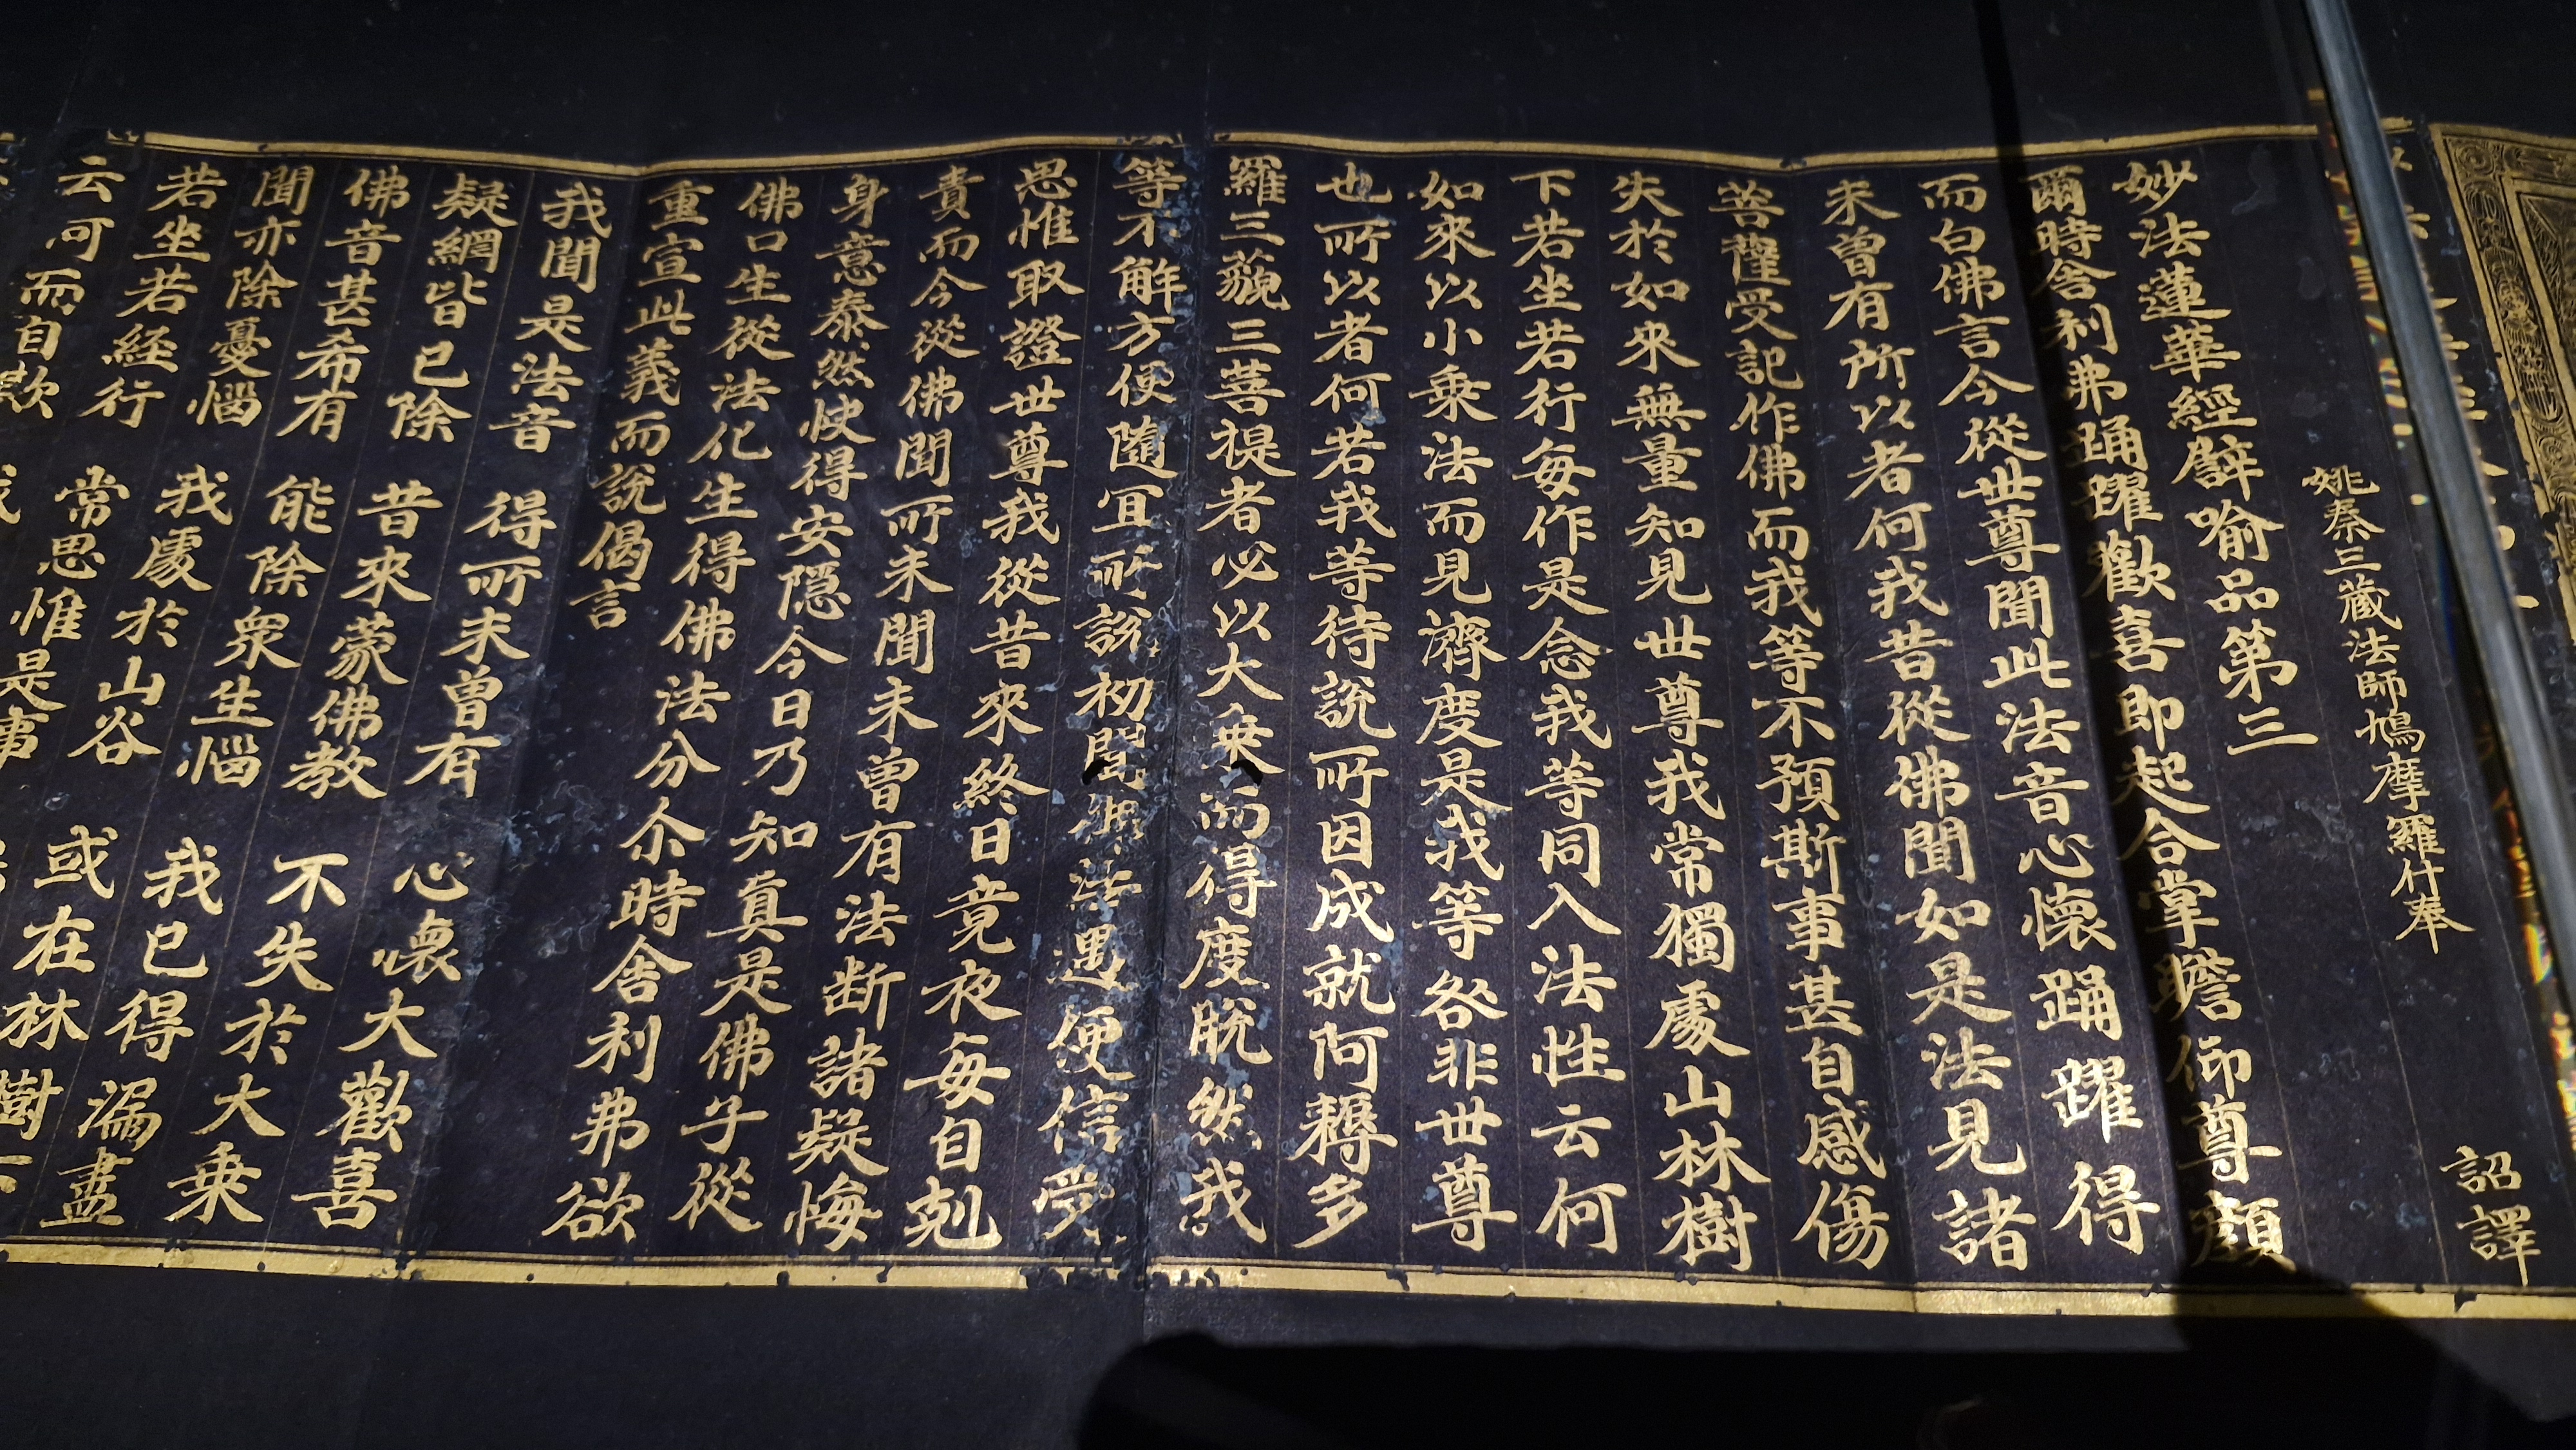 姚秦三藏法師鳩摩羅什奉 詔譯
妙法蓮華經譬喻品第三
爾時舍利弗踊躍歡喜即起合掌瞻仰尊顏
而白佛言今從世尊聞此法音心懷踊躍得
未曾有所以者何我昔從佛聞如是法見諸
菩薩受記作佛而我等不預斯事甚自感傷
失於如來無量知見世尊我常獨處山林樹
下若坐若行每作是念我等同入法性云何
如來以小乘法而見濟度是我等咎非世尊
也所以者何若我等待說所因成就阿耨多
羅三藐三菩提者必以大乘而得度脫然我
等不解方便隨宜所說初聞佛法遇便信受
思惟取證世尊我從昔來終日竟夜每自剋
責而今從佛聞所未聞未曾有法断諸疑悔
身意泰然快得安隱今日乃知真是佛子從
佛口生從法化生得佛法分尒時舍利弗欲
重宣此義而說偈言
我聞是法音 得所未曾有 心懷大歡喜
疑網皆已除 昔來蒙佛教 不失於大乘
佛音甚希有 能除眾生惱 我已得漏盡
聞亦除憂惱 我處於山谷 或在林樹下
若坐若經行 常思惟是事
云何而自欺